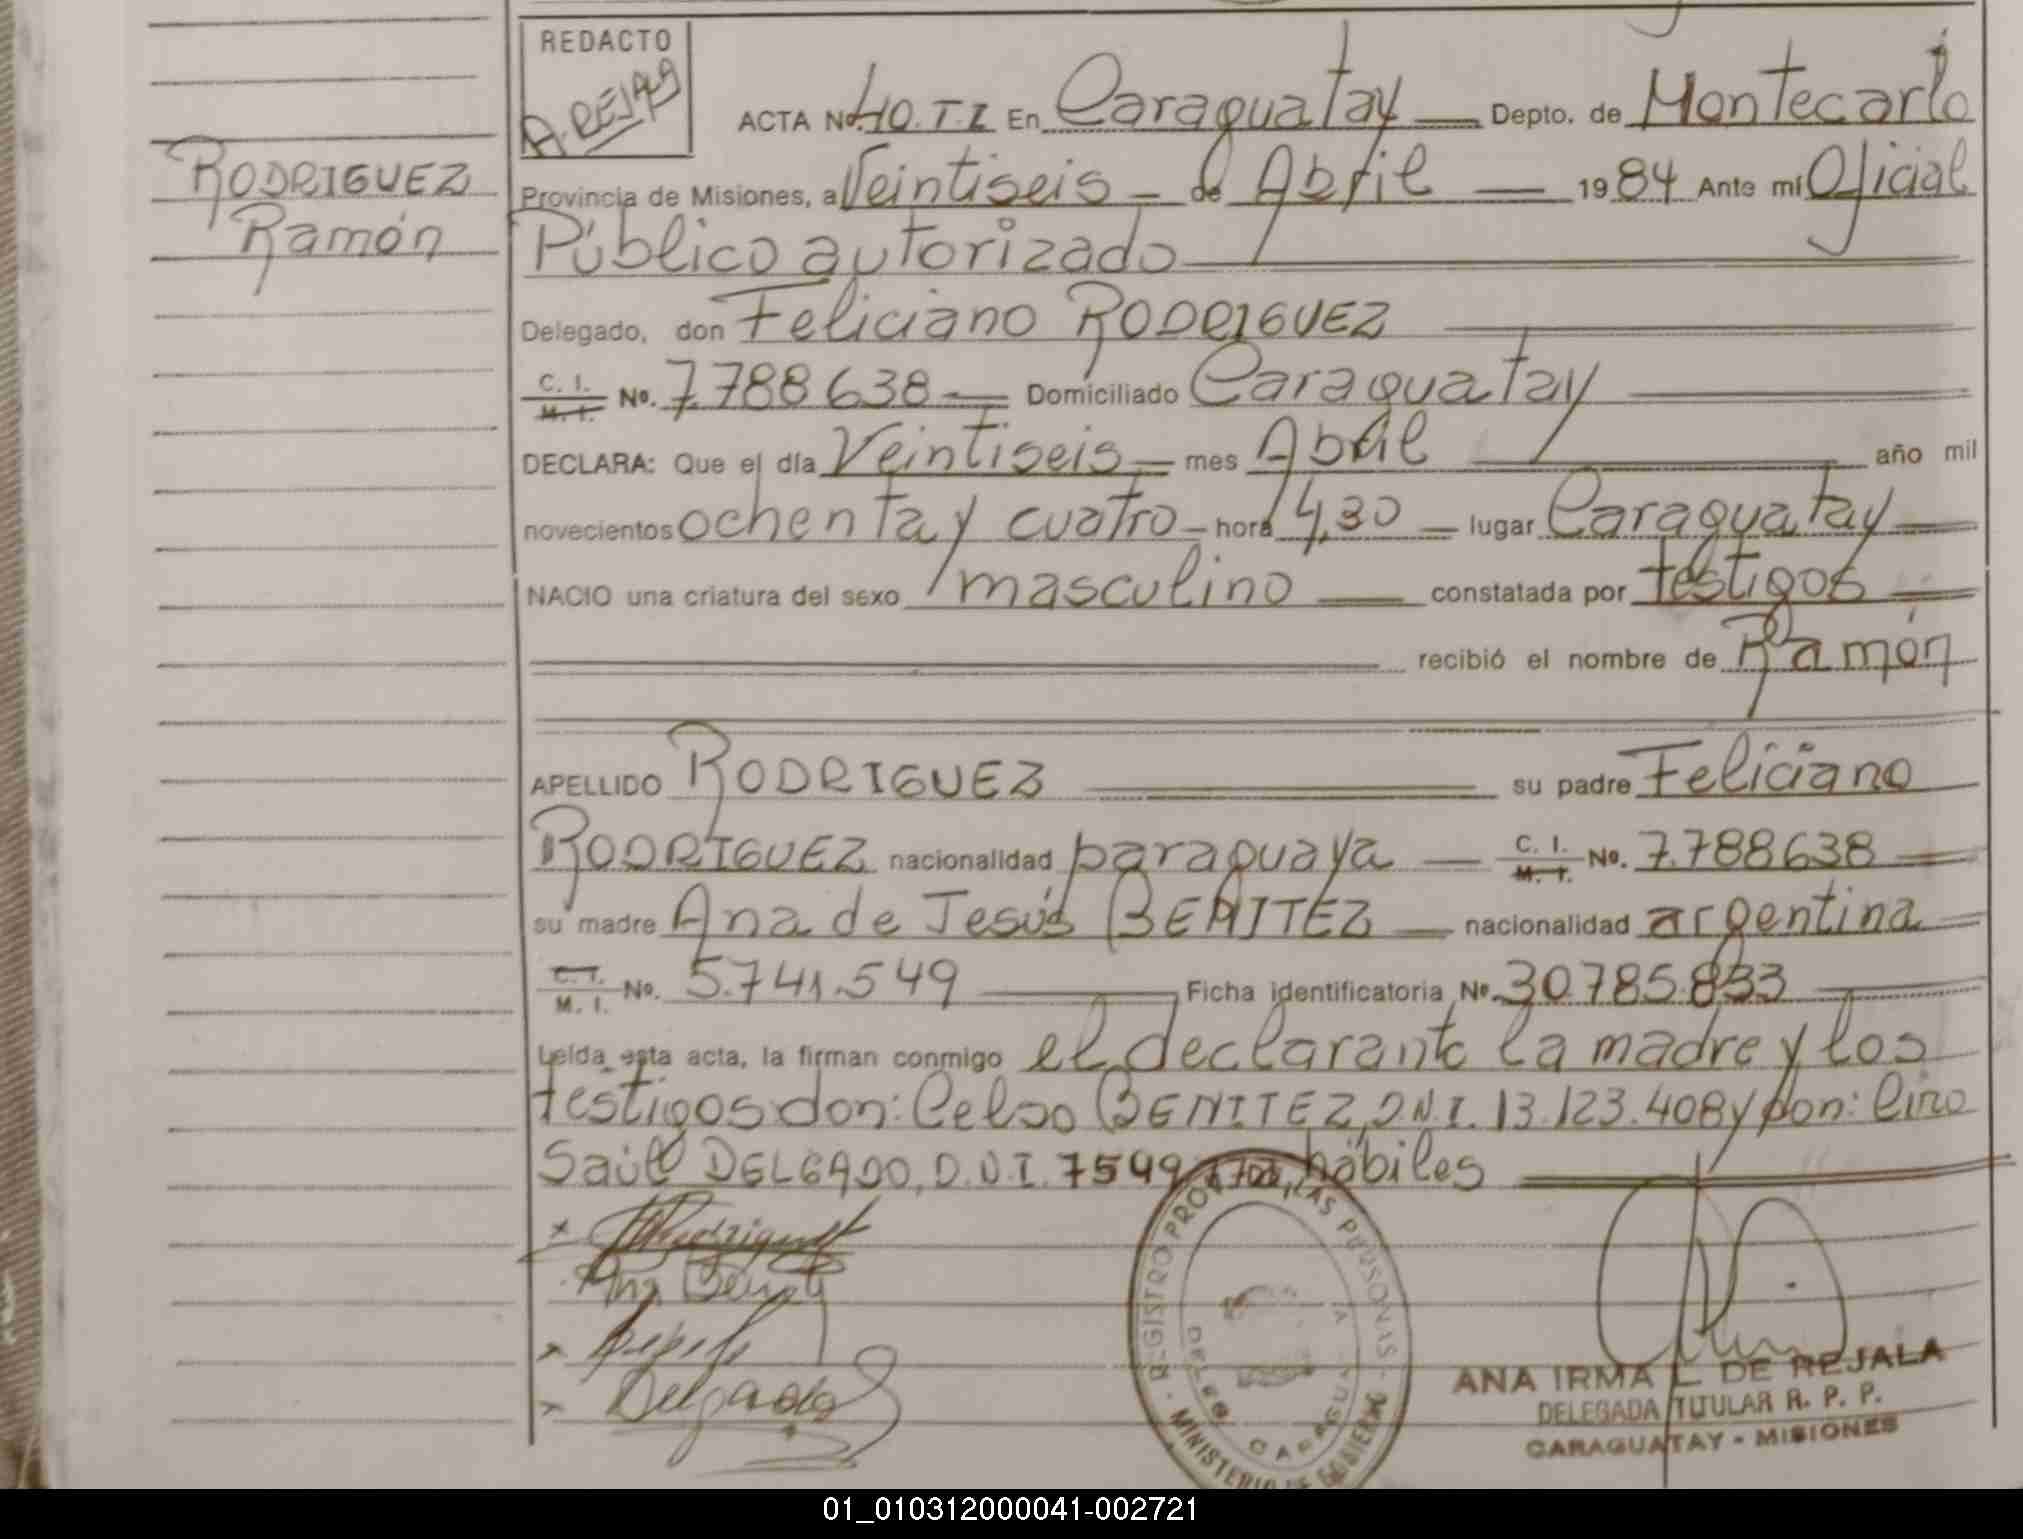 REDACTO
A. REJALA
ACTA No. 40.T.I En Caraguatay Depto. de Montecarlo
RODRIGUEZ
Ramón
Provincia de Misiones, a Veintiseis de Abril 1984 Ante mí Oficial
Público autorizado
Delegado, don Feliciano RODRIGUEZ
C. I. M. I. No. 7.788638 Domiciliado Caraguatay
DECLARA: Que el día Veintiseis mes Abril año mil
novecientos ochenta y cuatro hora 4,30 lugar Caraguatay
NACIO una criatura del sexo masculino constatada por testigos
recibió el nombre de Ramón
APELLIDO RODRIGUEZ su padre Feliciano
RODRIGUEZ nacionalidad paraguaya C. I. M. I. No. 7.788638
su madre Ana de Jesús BENITEZ nacionalidad argentina
C. I. M. I. No. 5.741.549 Ficha identificatoria No. 30.785.833
Leída esta acta, la firman conmigo el declarante la madre y los
testigos don: Celso BENITEZ, D.N.I. 13.123.408 y don: Ciro
Saúl DELGADO, D.N.I. 7549 hábiles
Ana Benit
Delgado
REGISTRO PROV LAS PERSONAS
MINISTERIO DE GOBIERNO
DELEG CARAGUA
ANA IRMA L DE REJALA
DELEGADA TITULAR R. P. P.
CARAGUATAY - MISIONES
01_010312000041-002721